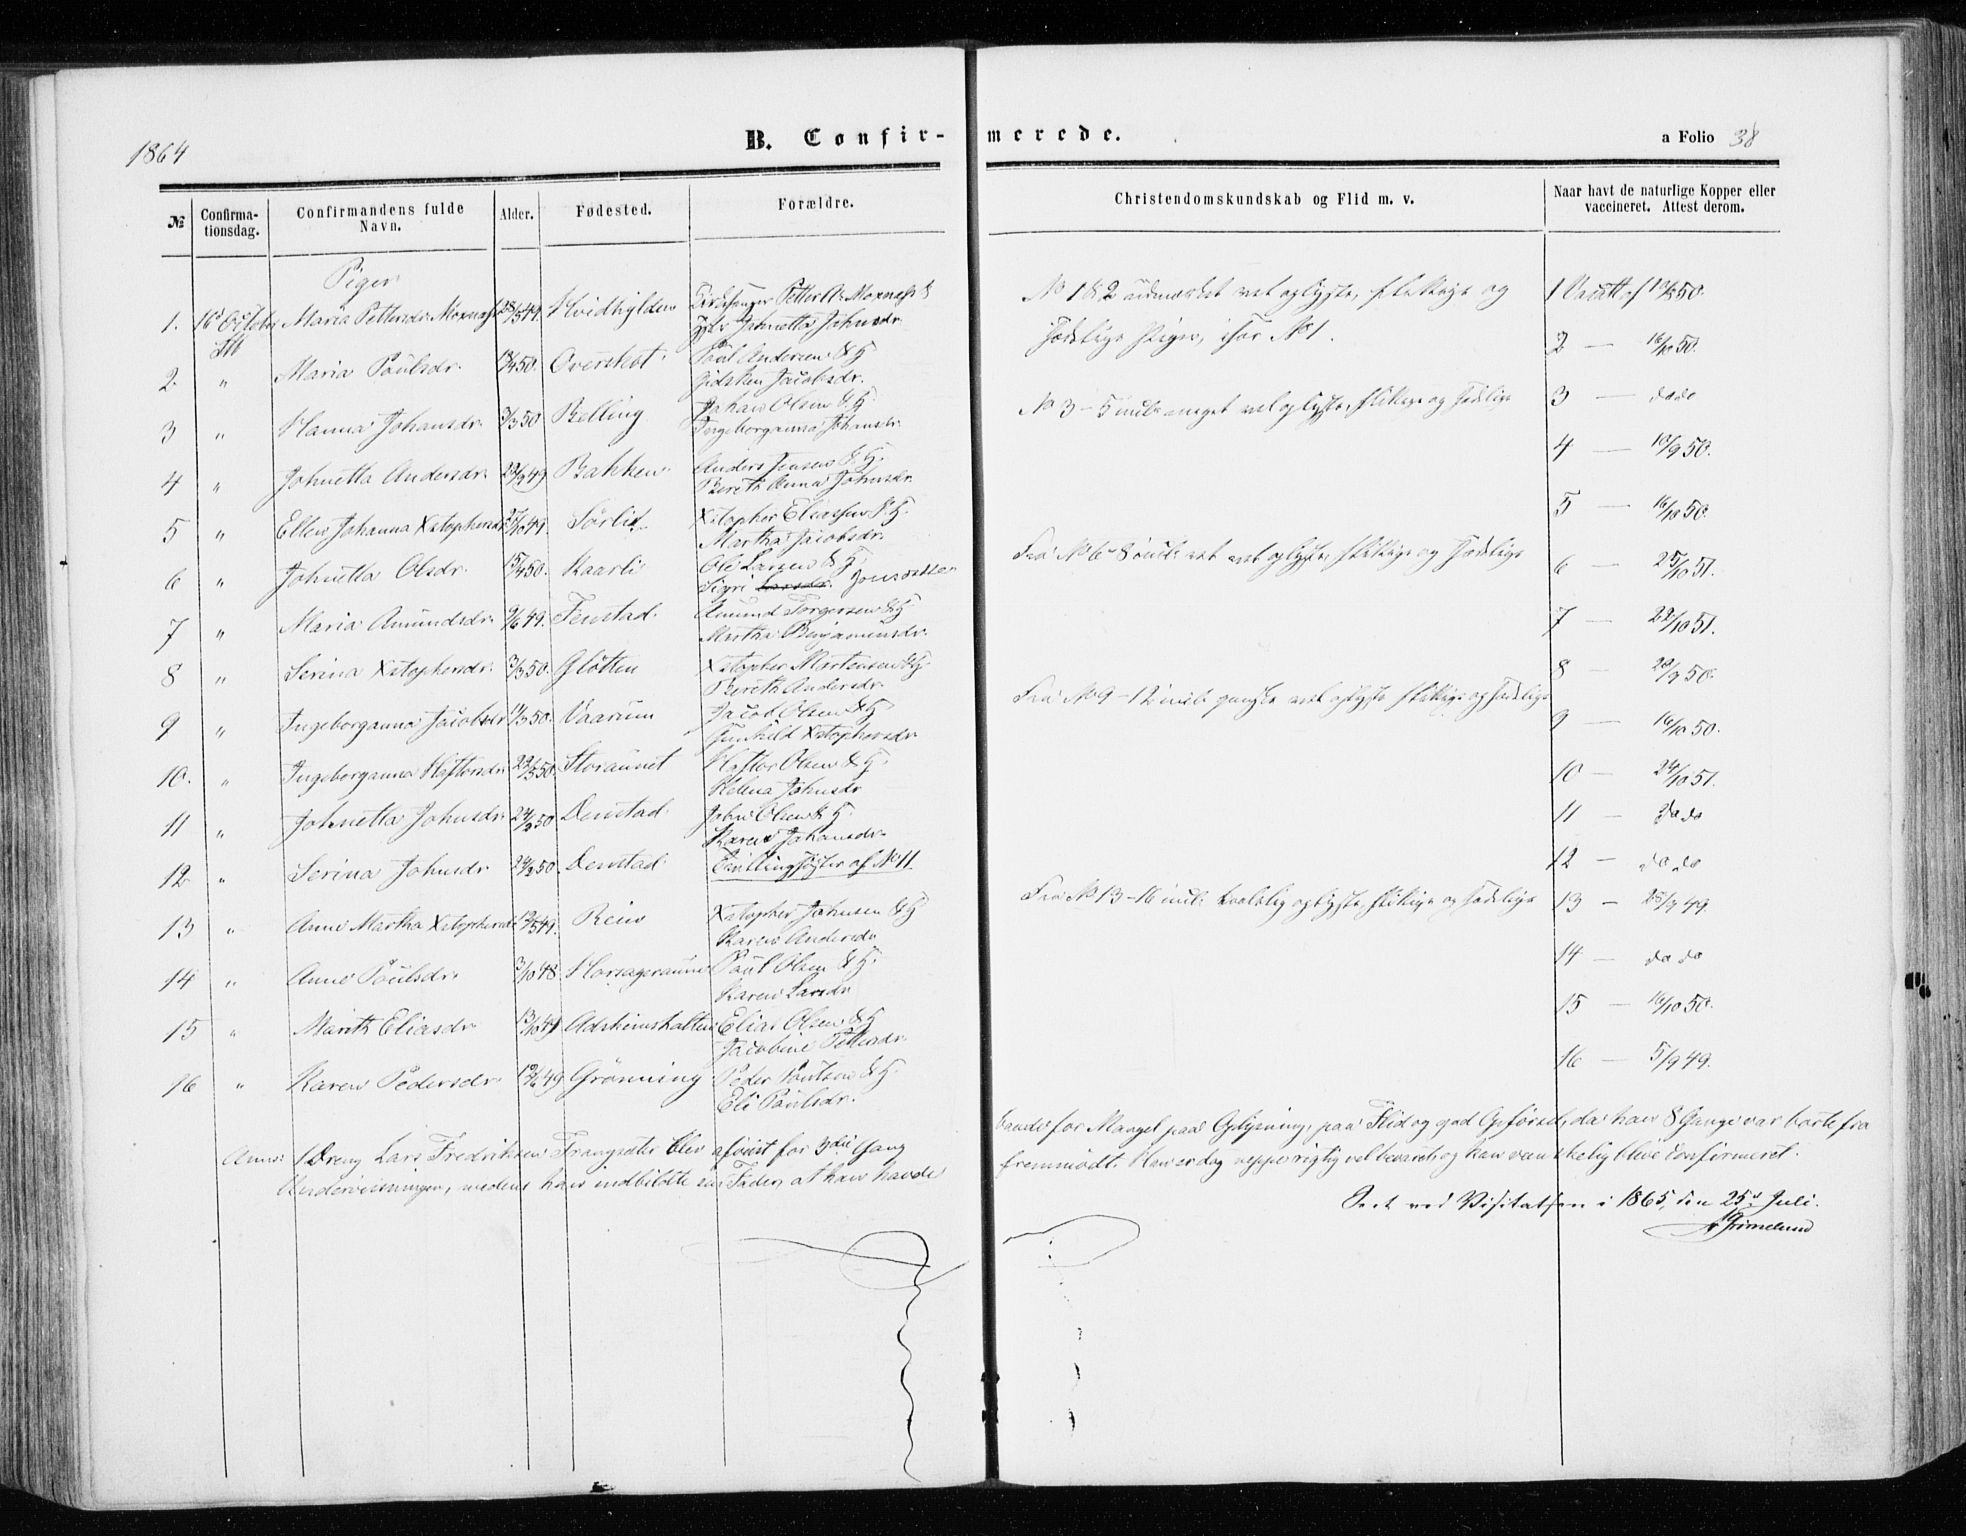 1864
B. Confir-
merede.
a Folio 38
№
Confirma-
tionsdag.
Confirmandens fulde
Navn.
Alder.
Fødested.
Forældre.
Christendomskundskab og Flid m. v.
Naar havt de naturlige Kopper eller
vaccineret. Attest derom.
Piger
1. 16d October Maria Pettersdr. Moxness 28/5 49. Hvidhylden Kirkesanger Petter A. Moxness &
Johnetta Johnsdr.
2. " Maria Paulsdr. 50. Overskot Paul Andersen & H.
Gidsken Jacobsdr.
3 " Hanna Johansdr. 3/3 50 Belling Johan Olsen & H.
Ingeborganna Johansdr.
4 " Johnetta Andersdr. 29/9 49 Bakken Anders Jensen & H.
Bereth Anna Johnsdr.
5 " Ellen Johanna Xstophersdr. 27/10 49. Sørlid Xstopher Eliassen & H.
Martha Jacobsdr.
6 " Johnetta Olsdr. 15/4 50. Kaarli Ole Larsen & H
Sigri Larsdr. Jonsdatter
7 " Maria Amundsdr. 9/6 49. Fenstad Amund Torgersen & H
Martha Benjaminsdr.
8 " Serina Xstophersdr. 3/3 50. Gløtten Xstopher Mortensen & H.
Bereth Andersdr.
9 " Ingeborganna Jacobsdr 11/3 50. Vaarum Jacob Olsen & H
Gunhild Xstophersdr
10. " Ingeborganna Haftorsdr 22/3 50 Storaunet Haftor Olsen & H.
Helena Johnsdr
11 " Johnetta Johnsdr. 24/2 50 Denstad John Olsen & H.
Karen Johansdr.
12 " Serina Johnsdr. 24/2 50 Denstad Tvillingsøster af No 11.
13 " Anne Martha Xstophersdr. 12/5 49. Rein Xstopher Johnsen & H
Karen Andersdr
14 " Anne Paulsdr. 3/10 48 Horsageraune Paul Olsen & H.
Karen Larsdr
15 " Marith Eliasdr 13/10 49 Adskinshatten Elias Olsen & H
Jacobine Pettersdr.
16 " Karen Pedersdr. 12/6 49 Grønning Peder Poulsen & H.
Eli Paulsdr.
No 1 & 2 udmærket vel oplyste, flittige og
sædelige Piger, især No 1.
No 3 - 5 incl. meget vel oplyste, flittige og sædelige
Fra No 6 - 8 incl. vel oplyste, flittige og sædelige
Fra No 9 - 12 incl. ganske vel oplyste flittige og sædelige
Fra No 13 - 16 incl. taalelig oplyste, flittige og sædelige
1 Vaccatt af 50.
2 — 16/10 50.
3 — dodo
4 — 10/9 50.
5 — 16/10 50.
6 — 25/10 51.
7 — 22/10 51.
8 — 29/9 50.
9 — 16/10 50.
10 — 24/10 51.
11 — do do
12 — do do
13 — 25/7 49.
14 — do do
15 — 16/10 50.
16 — 5/9 49.
Anm: 1 Dreng Lars Fredriksen blev afviist for 3die Gang
Underviisningen, medens han indbildte sin Fader, at han havde
for Mangel paa Oplysning, paa Flid og god Opførsel, da han 8 Gange var borte fra
fremmødt. Han er dog neppe rigtig vel bevaret og kan vanskelig blive Confirmeret.
Seet ved Visitatsen i 1865, den 25d Juli.
Grimelund